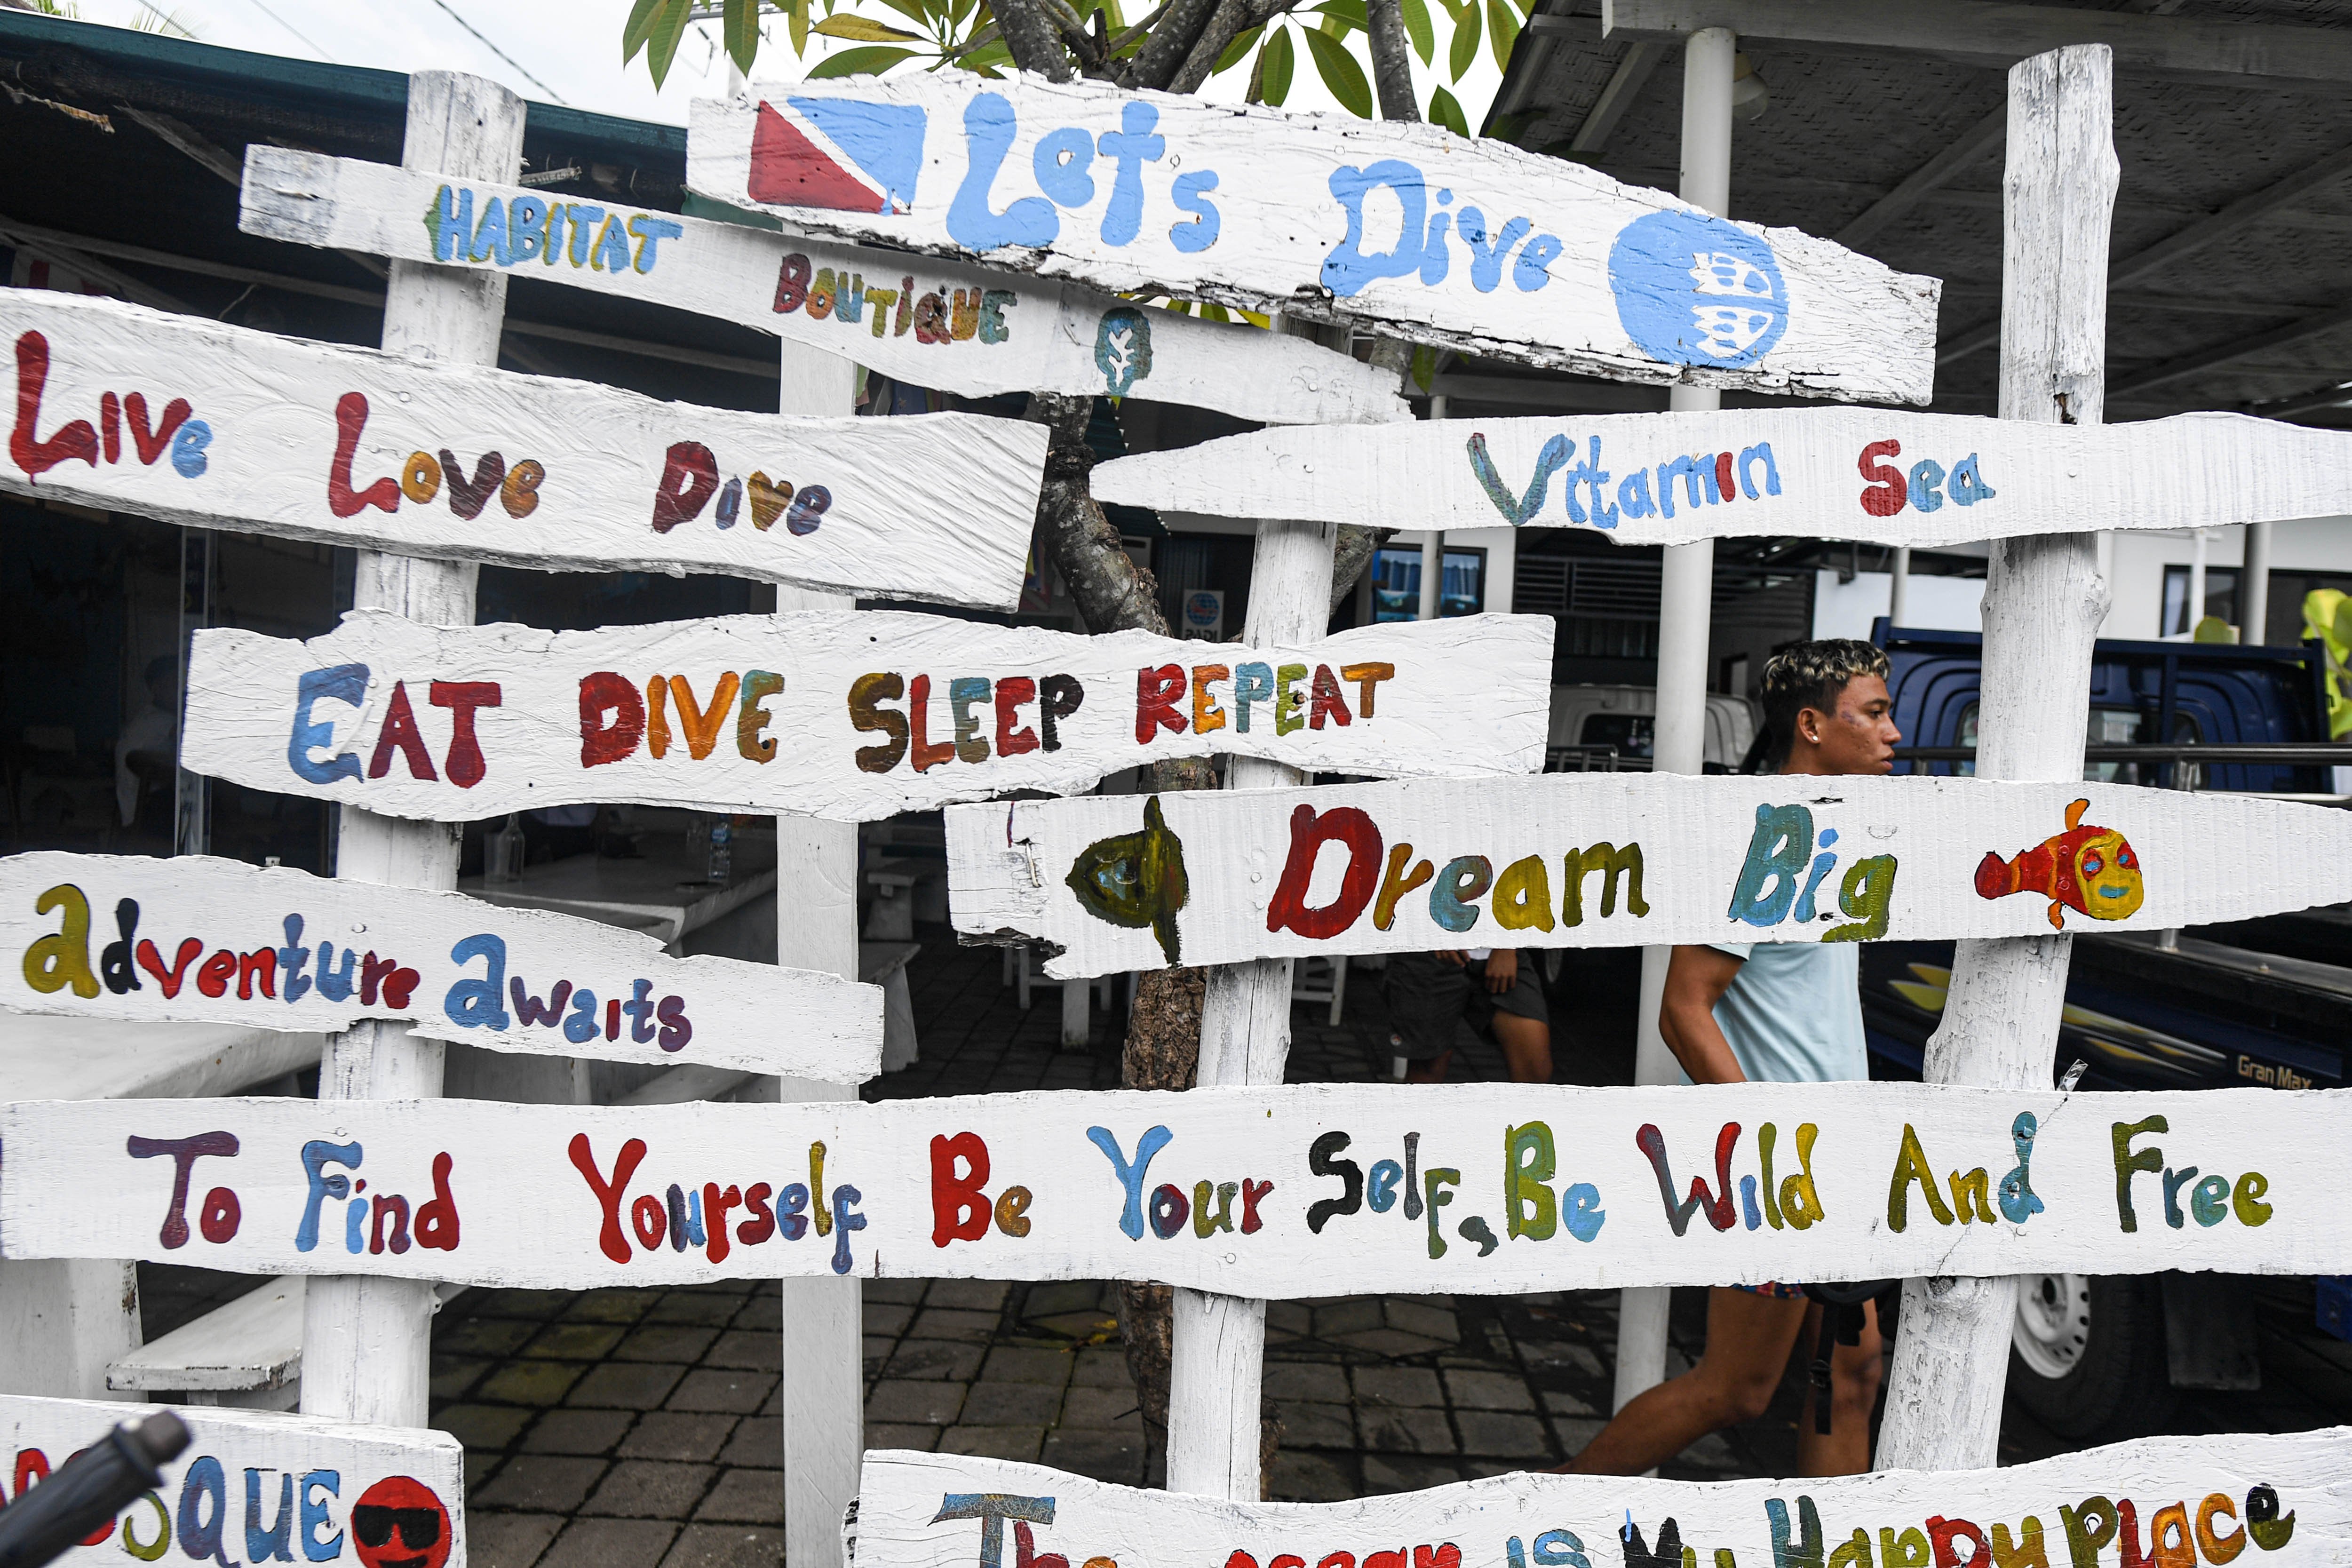 Lets Dive
HABITAT BOUTIQUE
Live Love Dive
Vitamin Sea
EAT DIVE SLEEP REPEAT
Dream Big
adventure awaits
Gran Max
To Find Yourself Be Your Self, Be Wild And Free
The ocean is My Happy place